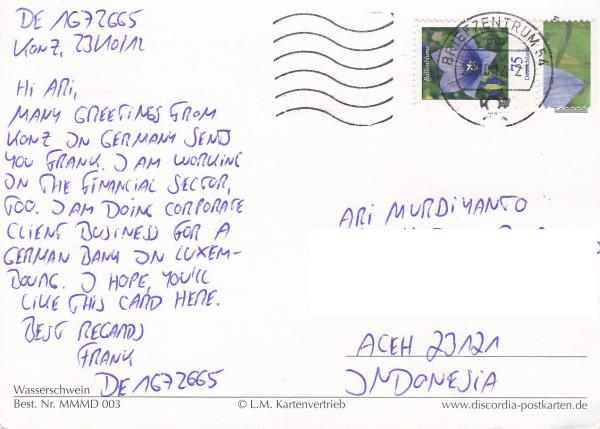 DE 1672665
KONZ, 23/10/12
HI ARI,
MANY GREETINGS FROM
KONZ IN GERMANY SENDS
YOU FRANK. I AM WORKING
IN THE FINANCIAL SECTOR,
TOO. I AM DOING CORPORATE
CLIENT BUSINESS FOR A
GERMAN BANK IN LUXEM-
BOURG. I HOPE, YOU'LL
LIKE THIS CARD HERE.
BEST REGARDS
FRANK
DE 1672665
Wasserschwein
Best. Nr. MMMD 003
© L.M. Kartenvertrieb
www.discordia-postkarten.de
BRIEFZENTRUM 54
Ballonblume
75
Deutschland
ARI MURDIYANTO
ACEH 23121
INDONESIA